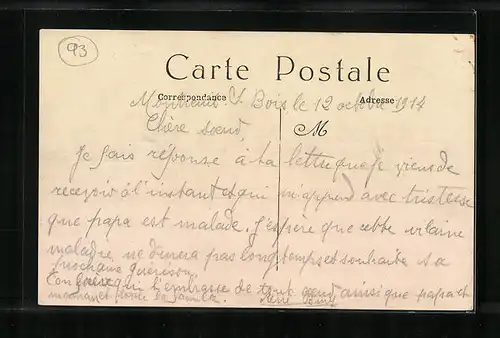 93
Carte Postale
Correspondance Adresse
Montreuil s. Bois le 12 octobre 1914
M
Chère sœur,
Je fais réponse à ta lettre que je viens de
recevoir à l'instant et qui m'apprend avec tristesse
que papa est malade. J'espère que cette vilaine
maladie, ne durera pas longtemps et souhaite sa
prochaine guérison.
Ton frère qui t'embrasse de tout cœur ainsi que papa et
maman et toute la famille. René